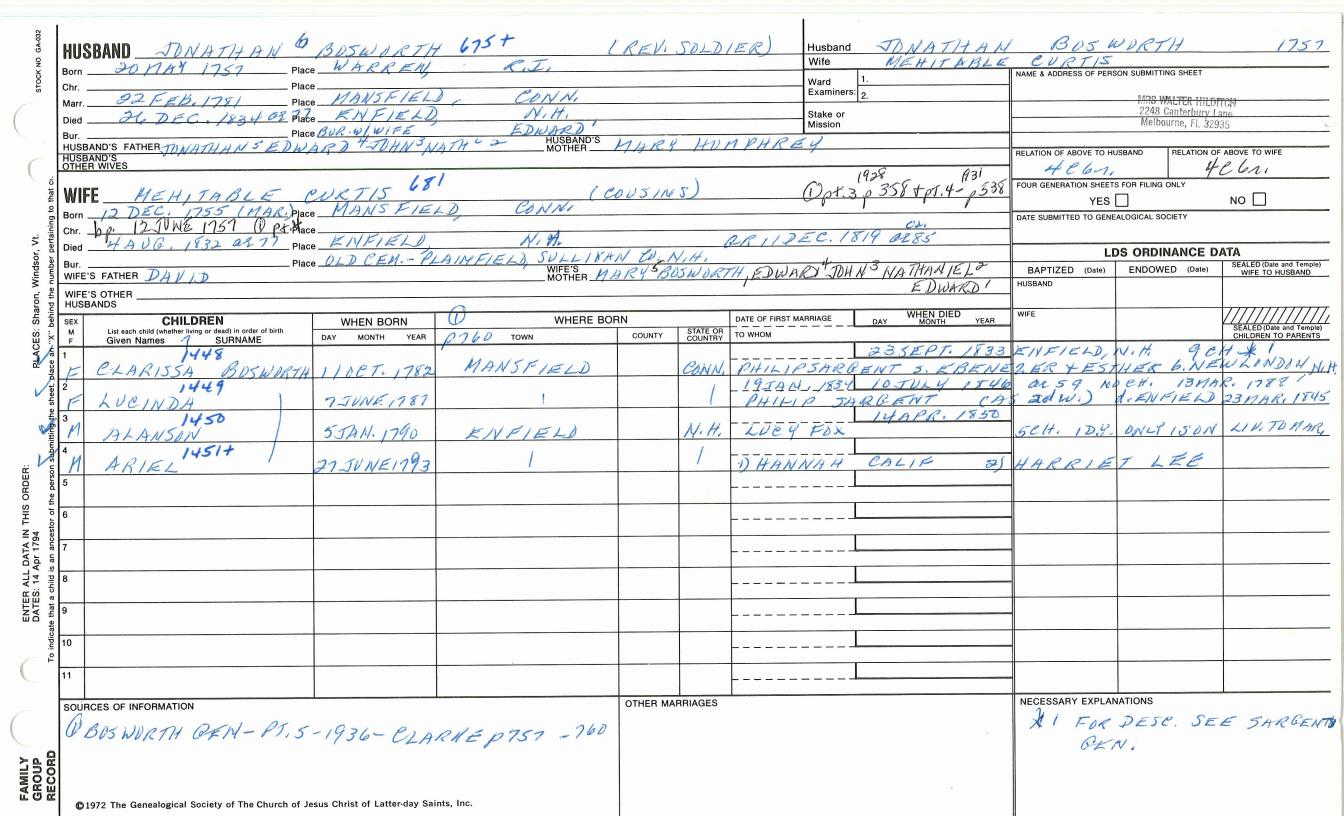 STOCK NO. GA-032
HUSBAND JONATHAN 6 BOSWORTH 675+ (REV. SOLDIER)
Born 20 MAY 1757 Place WARREN, R.I.
Chr. Place
Marr. 22 FEB. 1781 Place MANSFIELD, CONN.
Died 26 DEC. 1834 ae 77 Place ENFIELD, N.H.
Bur. Place BUR. W/WIFE EDWARD 1
HUSBAND'S FATHER JONATHAN 5 EDWARD 4 JOHN 3 NATH'L 2 HUSBAND'S MOTHER MARY HUMPHREY
HUSBAND'S OTHER WIVES
Husband JONATHAN BOSWORTH 1757
Wife MEHITABLE CURTIS
Ward Examiners: 1.
2.
Stake or Mission
NAME & ADDRESS OF PERSON SUBMITTING SHEET
MRS WALTER HILDITCH
2248 Canterbury Lane
Melbourne, Fl. 32935
RELATION OF ABOVE TO HUSBAND RELATION OF ABOVE TO WIFE
4C6r. 4C6r.
FOUR GENERATION SHEETS FOR FILING ONLY
YES NO
DATE SUBMITTED TO GENEALOGICAL SOCIETY
WIFE MEHITABLE CURTIS 681 (COUSINS) ① pt. 3 1928 p 358 + pt. 4- 1931 p 538
Born 12 DEC. 1755 (MAR.) Place MANSFIELD, CONN.
Chr. bp. 12 JUNE 1757 ① pt. 4 Place
Died 4 AUG. 1832 ae 77 Place ENFIELD, N.H. OR 11 DEC. 1819 ca. ae 85
Bur. Place OLD CEM. - PLAINFIELD, SULLIVAN CO, N.H.
WIFE'S FATHER DAVID WIFE'S MOTHER MARY 5 BOSWORTH, EDWARD 4 JOHN 3 NATHANIEL 2
EDWARD 1
WIFE'S OTHER HUSBANDS
LDS ORDINANCE DATA
BAPTIZED (Date) ENDOWED (Date) SEALED (Date and Temple) WIFE TO HUSBAND
HUSBAND
WIFE
SEALED (Date and Temple) CHILDREN TO PARENTS
SEX M F CHILDREN List each child (whether living or dead) in order of birth Given Names 7 SURNAME WHEN BORN DAY MONTH YEAR ① p760 WHERE BORN TOWN COUNTY STATE OR COUNTRY DATE OF FIRST MARRIAGE TO WHOM WHEN DIED DAY MONTH YEAR
1 1448 23 SEPT. 1833 ENFIELD, N.H. 9 CH * 1
F CLARISSA BOSWORTH 11 OCT. 1782 MANSFIELD CONN. PHILIP SARGENT S. EBENEZER + ESTHER b. NEW LONDON, N.H.
2 1449 19 JAN. 1834 10 JULY 1846 ae 59 NO CH. 13 MAR. 1782
F LUCINDA 7 JUNE 1787 PHILIP SARGENT (AS 2d W.) d. ENFIELD 23 MAR. 1845
3 1450 14 APR. 1850
M ALANSON 5 JAN. 1790 ENFIELD N.H. LUCY FOX 5 CH. 1 D.Y. ONLY 1 SON LIV. TO MAR.
4 1451+
M ARIEL 27 JUNE 1793 1) HANNAH CALIF 2) HARRIET LEE
5
6
7
8
9
10
11
SOURCES OF INFORMATION
① BOSWORTH GEN - PT. 5 - 1936 - CLARKE p 757 - 760
OTHER MARRIAGES
NECESSARY EXPLANATIONS
* 1 FOR DESC. SEE SARGENT
GEN.
©1972 The Genealogical Society of The Church of Jesus Christ of Latter-day Saints, Inc.
FAMILY GROUP RECORD
ENTER ALL DATA IN THIS ORDER:
DATES: 14 Apr. 1794
PLACES: Sharon, Windsor, Vt.
To indicate that a child is an ancestor of the person submitting the sheet, place an "X" behind the number pertaining to that c.